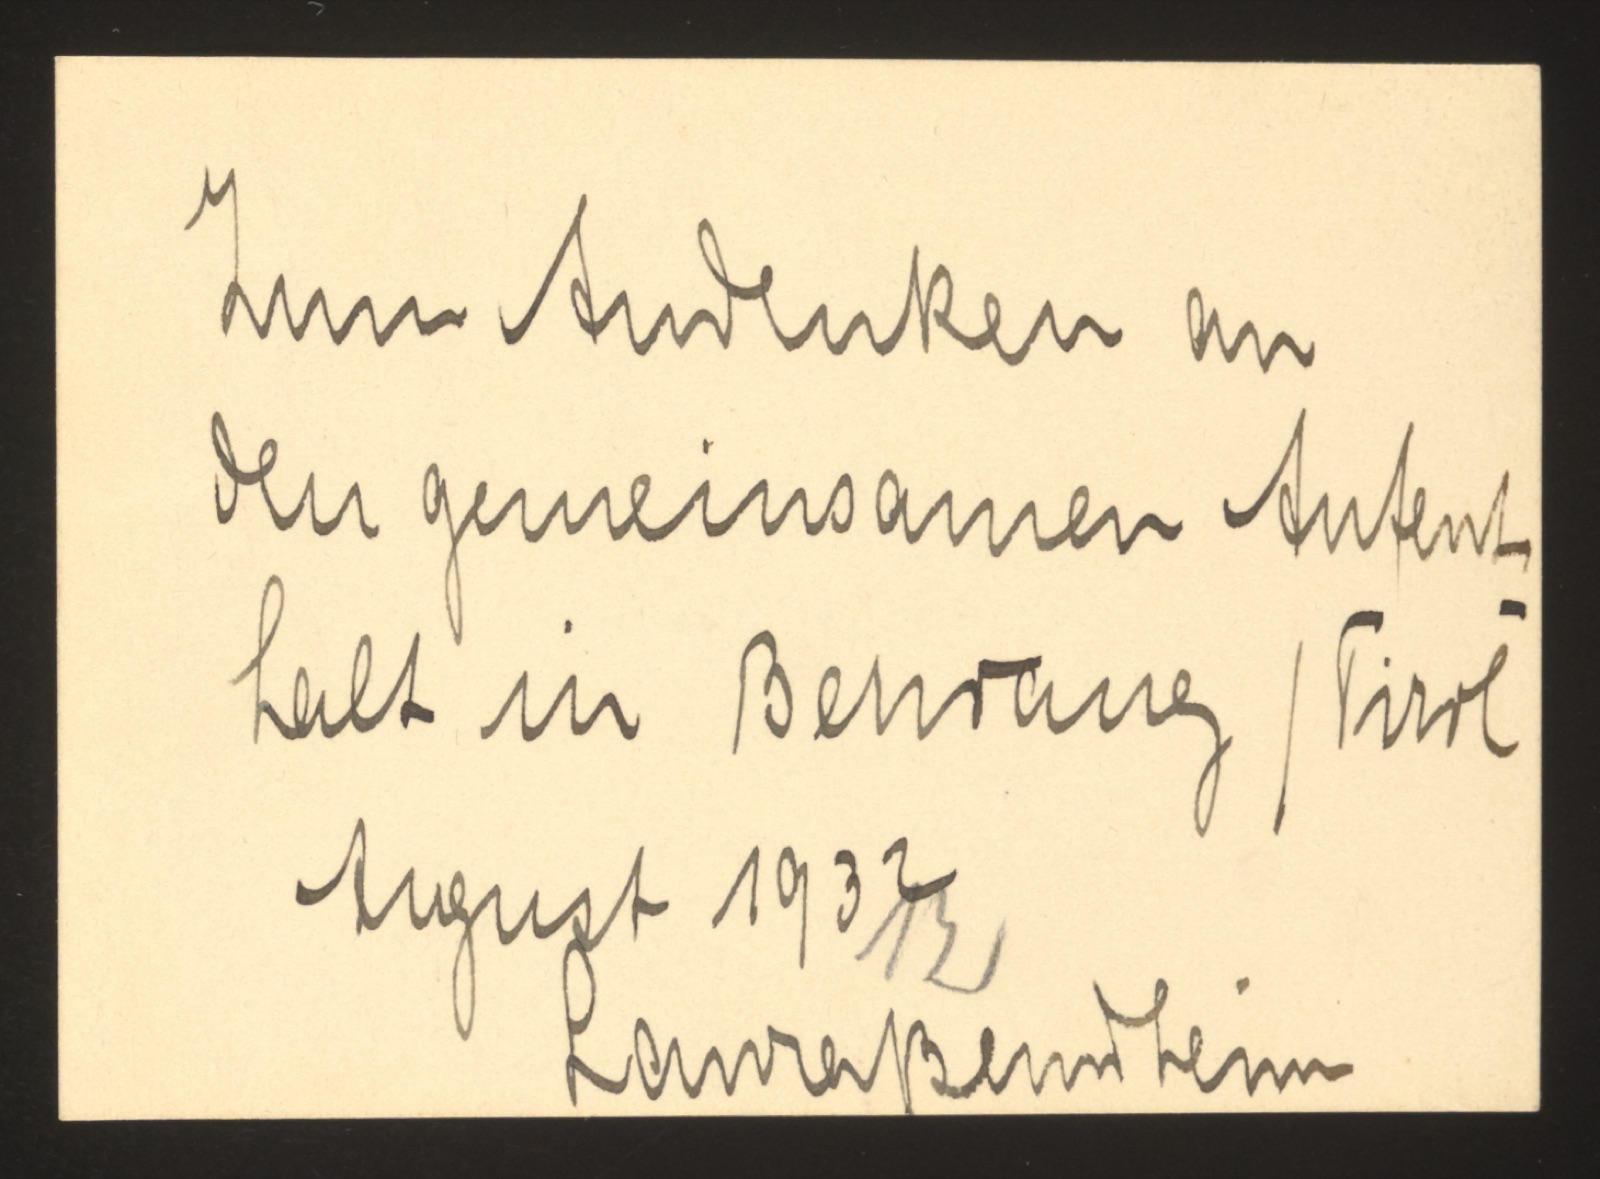 Zum Andenken an
den gemeinsamen Aufent-
halt in Behrang / Tirol
August 1932
Laura Bendheim